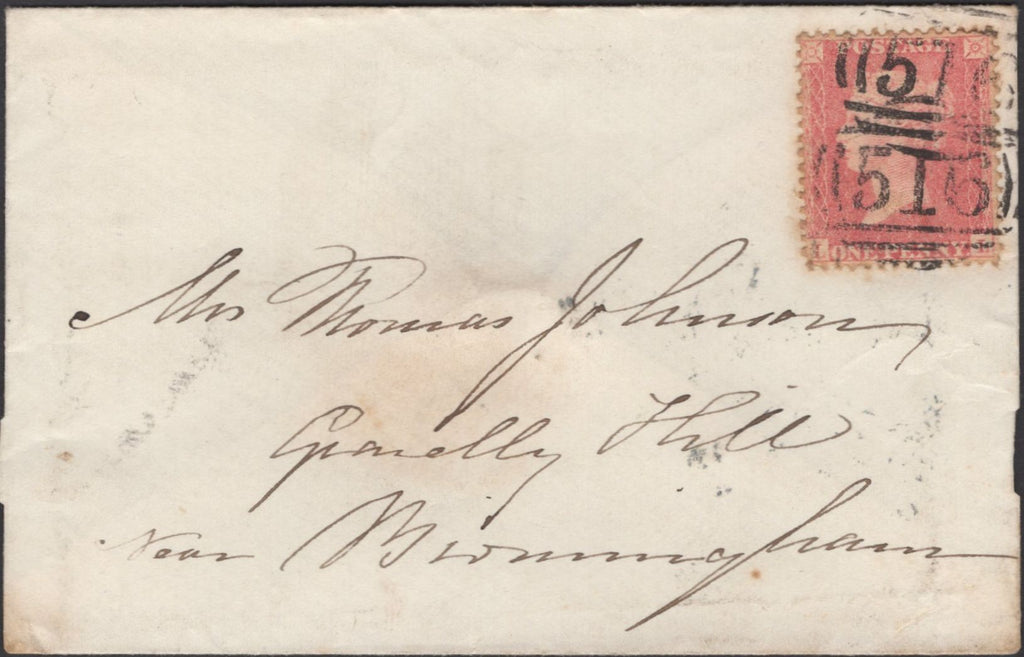 POSTAGE
57
516
ONE PENNY
Mrs Thomas Johnson
Gravelly Hill
Near Birmingham